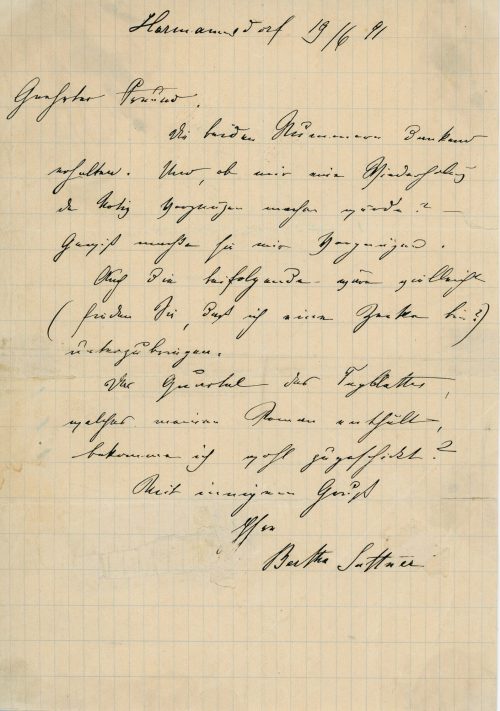 Harmannsdorf 19/6 91
Geehrter Freund.
Die beiden Nummern dankend
erhalten. Und, ob mir eine Wiederholung
der Notiz Vergnügen machen würde? –
Gewiß machte sie mir Vergnügen.
Auch die beifolgende wäre vielleicht
(finden Sie, daß ich eine Zecke bin?)
unterzubringen.
Das Quartal des Tagblattes,
welches meinen Roman enthält,
bekomme ich wohl zugeschickt?
Mit innigem Gruß
Ihre
Bertha Suttner